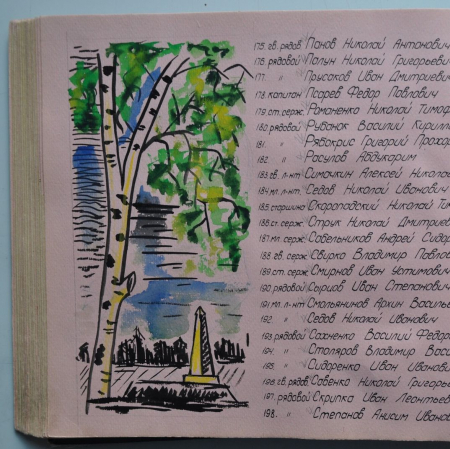 175. гв. рядов Панов Николай Антонович
176. рядовой Папун Николай Григорьеви
177. " Прусаков Иван Дмитриевич
178. капитан Псарев Федор Павлович
179. ст. серж. Романенко Николай Тимоф
180. рядовой Рубанок Василий Кирилл
181. " Рябокрис Григорий Прохор
182. " Расулов Абдукарим
183. гв. л-нт Симочкин Алексей Никола
184. мл. л-нт Седов Николай Иванович
185. старшина Скоропадский Николай Тим
186. ст. серж. Струк Николай Дмитрие
187. мл. серж. Савельников Андрей Сидор
188. гв. серж. Свирко Владимир Павло
189. ст. серж. Смирнов Иван Устимович
190. рядовой Сырцов Иван Степанович
191. мл. л-нт Смольянинов Архип Василь
192. " Седов Николай Иванович
193. рядовой Сахненко Василий Федор
194. " Столяров Владимир Васи
195. " Сидоренко Иван Иванови
196. гв. рядов. Савенко Николай Григорь
197. рядовой Скрипка Иван Леонтьев
198. " Степанов Анисим Ивано